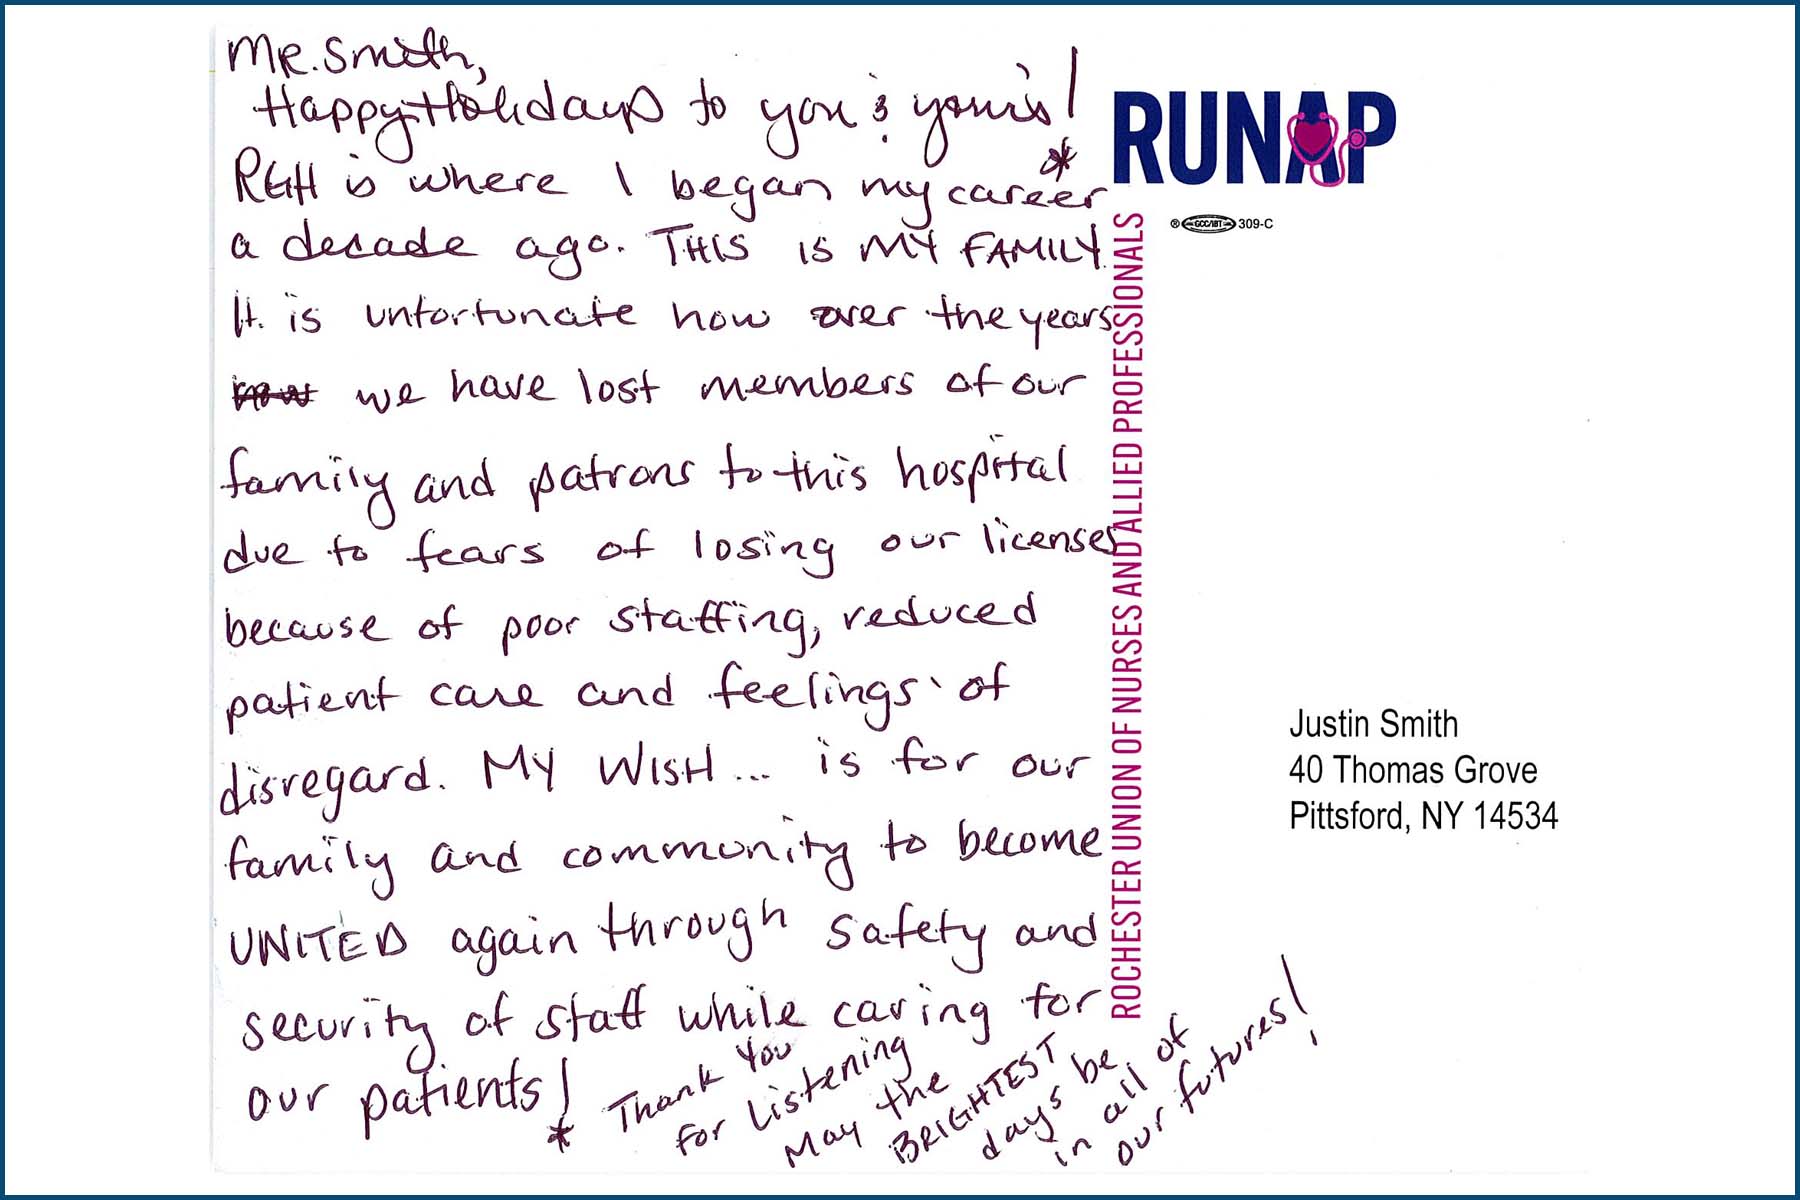 MR. Smith,
Happy Holidays to you & your's!
RGH is where I began my career
a decade ago. THIS IS MY FAMILY.
It is unfortunate how over the years
how we have lost members of our
family and patrons to this hospital
due to fears of losing our licenses
because of poor staffing, reduced
patient care and feelings of
disregard. MY WISH... is for our
family and community to become
UNITED again through safety and
security of staff while caring for
our patients!
* Thank You
for Listening
May the
BRIGHTEST
days be
in all of
our futures!
*
RUNAP
® GCC/IBT 309-C
ROCHESTER UNION OF NURSES AND ALLIED PROFESSIONALS
Justin Smith
40 Thomas Grove
Pittsford, NY 14534